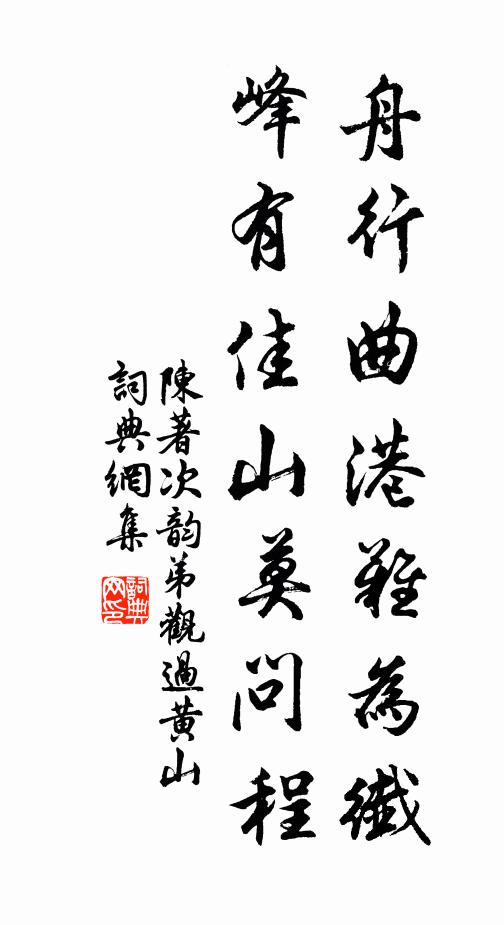 舟行曲港難為纖
峰有佳山莫問程
陳著次韵弟觀過黃山
詞典網集
詞典
网印